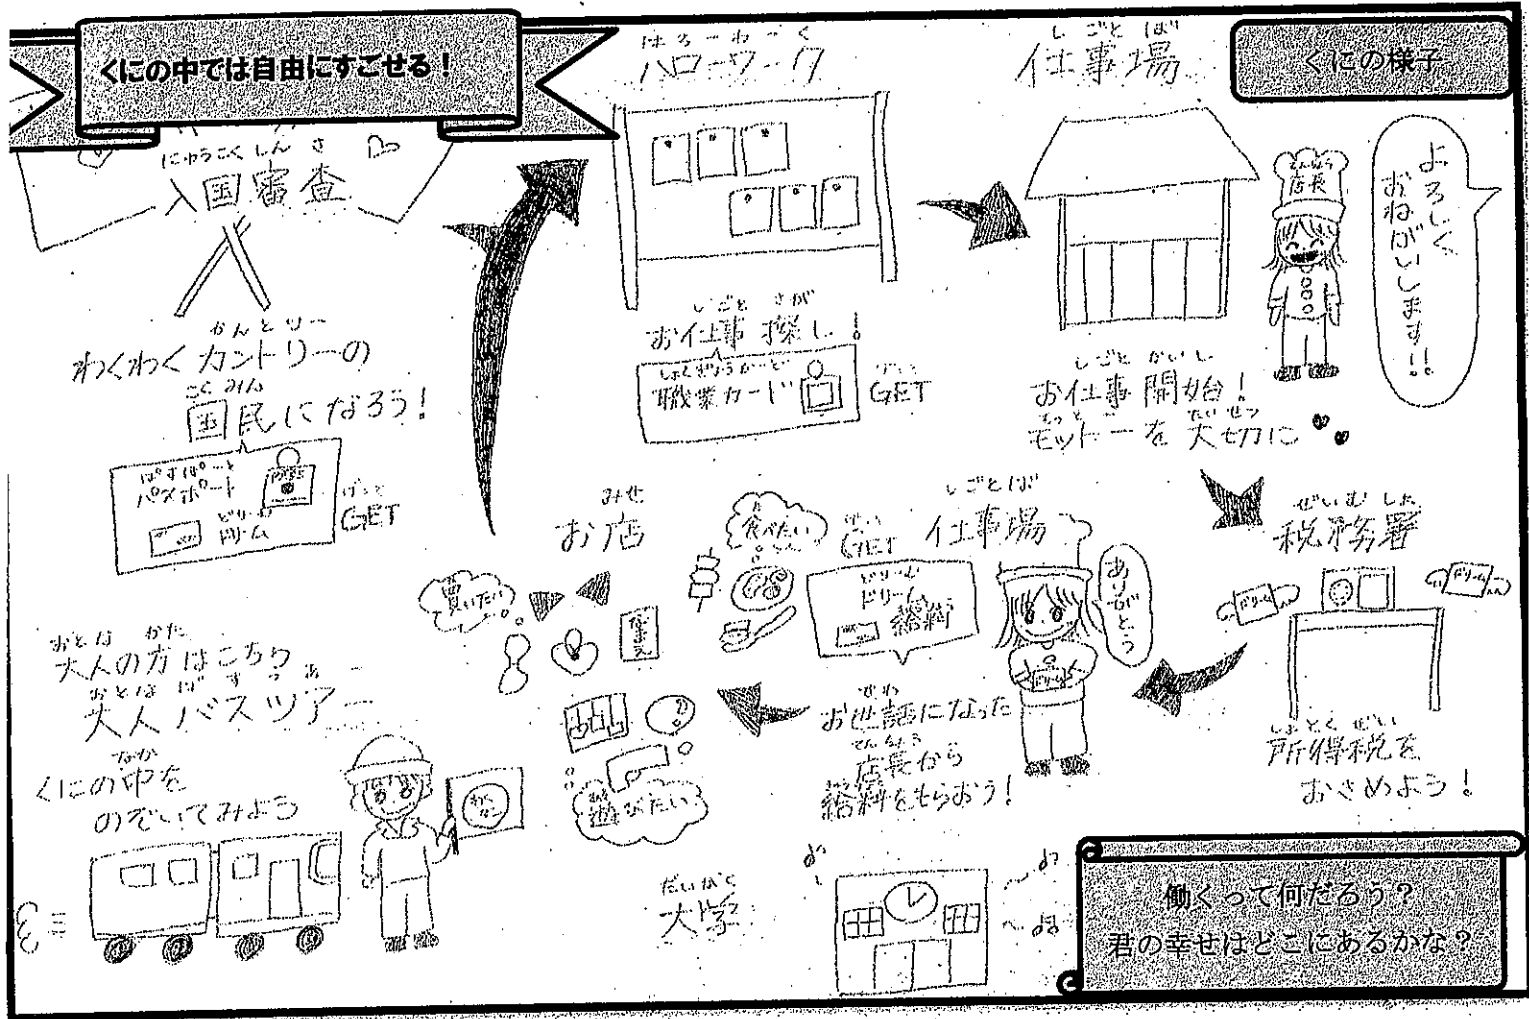 くにの中では自由にすごせる!
くにの様子
にゅうこくしんさ
入国審査
かんとりー
わくわくカントリーの
こくみん
国民になろう!
ぱすぽーと
パスポート
どりーむ
ドリーム
げっと
GET
はろーわーく
ハローワーク
しごと さが
お仕事探し!
しょくぎょうかーど
職業カード
げっと
GET
しごとば
仕事場
てんちょう
店長
よろしく
おねがいします!!
しごと かいし
お仕事開始!
もっとー たいせつ
モットーを大切に
ぜいむしょ
税務署
ドリーム
ドリーム
しょとくぜい
所得税を
おさめよう!
しごとば
仕事場
ありがとう
ドリーム
げっと
GET
どりーむ
ドリーム
給料
せわ
お世話になった
てんちょう
店長から
給料をもらおう!
みせ
お店
食べたい
買いたい
遊びたい
おとな かた
大人の方はこちら
おとなばすつあー
大人バスツアー
なか
くにの中を
のぞいてみよう
だいがく
大学
働くって何だろう?
君の幸せはどこにあるかな?